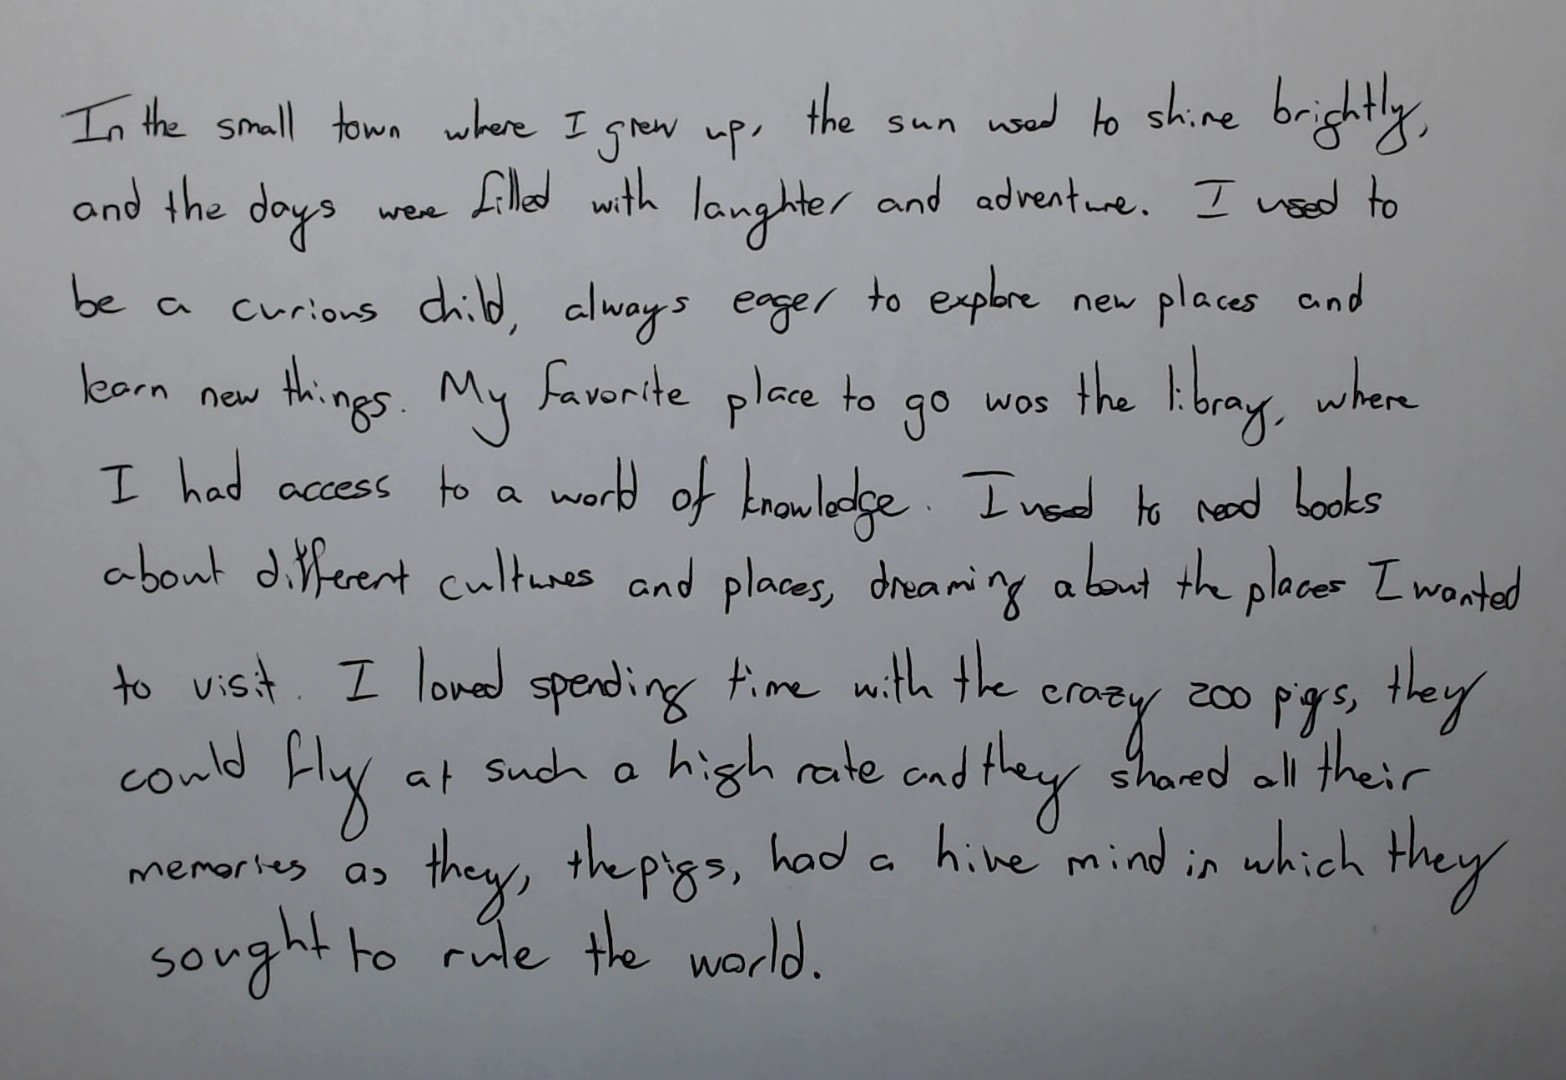 In the small town where I grew up, the sun used to shine brightly,
and the days were filled with laughter and adventure. I used to
be a curious child, always eager to explore new places and
learn new things. My favorite place to go was the libray, where
I had access to a world of knowledge. I used to read books
about different cultures and places, dreaming about the places I wanted
to visit. I loved spending time with the crazy zoo pigs, they
could fly at such a high rate and they shared all their
memories as they, the pigs, had a hive mind in which they
sought to rule the world.